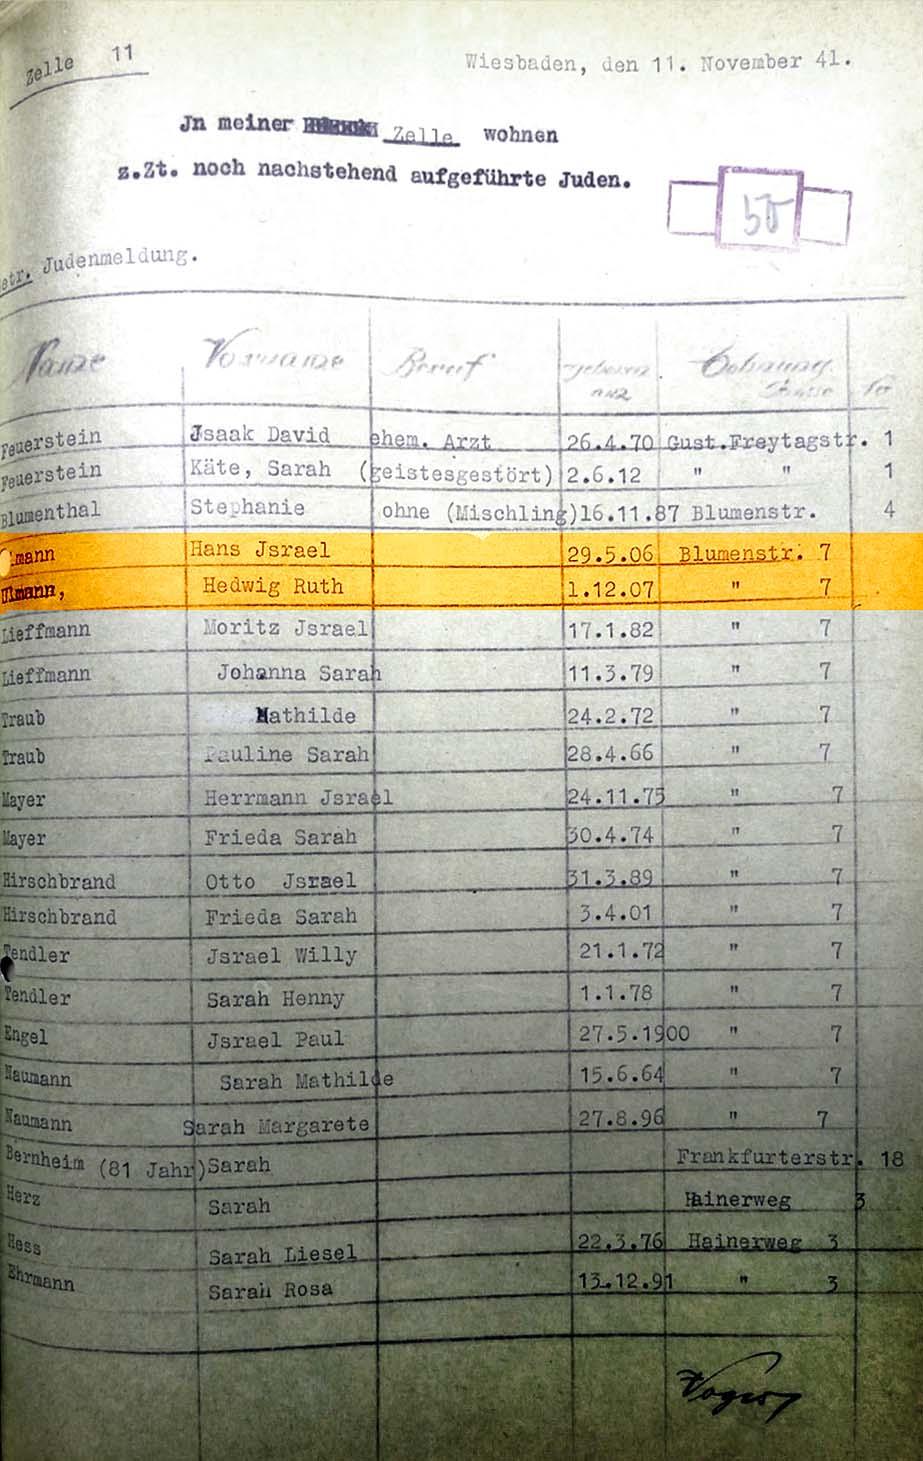 Zelle 11
Wiesbaden, den 11. November 41.
Jn meiner Zelle wohnen
z.Zt. noch nachstehend aufgeführte Juden.
50
etr. Judenmeldung.
Name Vorname Beruf geboren am Wohnung Strasse Nr
Feuerstein Jsaak David ehem. Arzt 26.4.70 Gust.Freytagstr. 1
Feuerstein Käte, Sarah (geistesgestört) 2.6.12 " " 1
Blumenthal Stephanie ohne (Mischling) 16.11.87 Blumenstr. 4
lmann Hans Jsrael 29.5.06 Blumenstr. 7
Ullmann, Hedwig Ruth 1.12.07 " 7
Lieffmann Moritz Jsrael 17.1.82 " 7
Lieffmann Johanna Sarah 11.3.79 " 7
Traub Mathilde 24.2.72 " 7
Traub Pauline Sarah 28.4.66 " 7
Mayer Herrmann Jsrael 24.11.75 " 7
Mayer Frieda Sarah 30.4.74 " 7
Hirschbrand Otto Jsrael 31.3.89 " 7
Hirschbrand Frieda Sarah 3.4.01 " 7
Tendler Jsrael Willy 21.1.72 " 7
Tendler Sarah Henny 1.1.78 " 7
Engel Jsrael Paul 27.5.1900 " 7
Naumann Sarah Mathilde 15.6.64 " 7
Naumann Sarah Margarete 27.8.96 " 7
Bernheim (81 Jahr) Sarah Frankfurterstr. 18
Herz Sarah Hainerweg 3
Hess Sarah Liesel 22.3.76 Hainerweg 3
Ehrmann Sarah Rosa 13.12.91 " 3